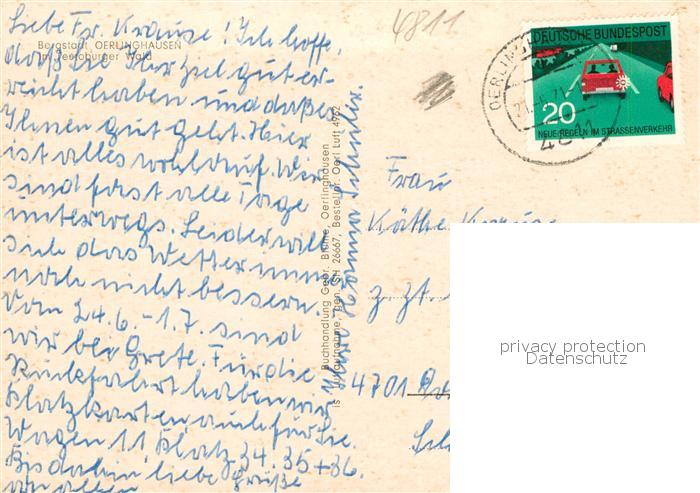 Liebe Fr. Krause! Ich hoffe,
daß Sie Ihr Ziel gut er-
reicht haben und daß es
Ihnen gut geht. Hier
ist alles wohlauf. Wir
sind fast alle Tage
unterwegs. Leider will
sich das Wetter immer
noch nicht bessern.
Vom 24.6. - 1.7. sind
wir bei Grete. Für die
Rückfahrt haben wir
Platzkarten auch für Sie.
Wagen 11, Platz 34. 35 + 36.
Bis dahin liebe Grüße
von allen
Ihre
Bergstadt OERLINGHAUSEN
im Teutoburger Wald
Buchhandlung Gebr. Blume, Oerlinghausen
Luftaufnahme, gen. SH 26667, Bestellnr. Oerl Luft 4962
4811
DEUTSCHE BUNDESPOST
20
NEUE REGELN IM STRASSENVERKEHR
4811
Frau
Käthe Krause
z. Zt.
4701
privacy protection
Datenschutz